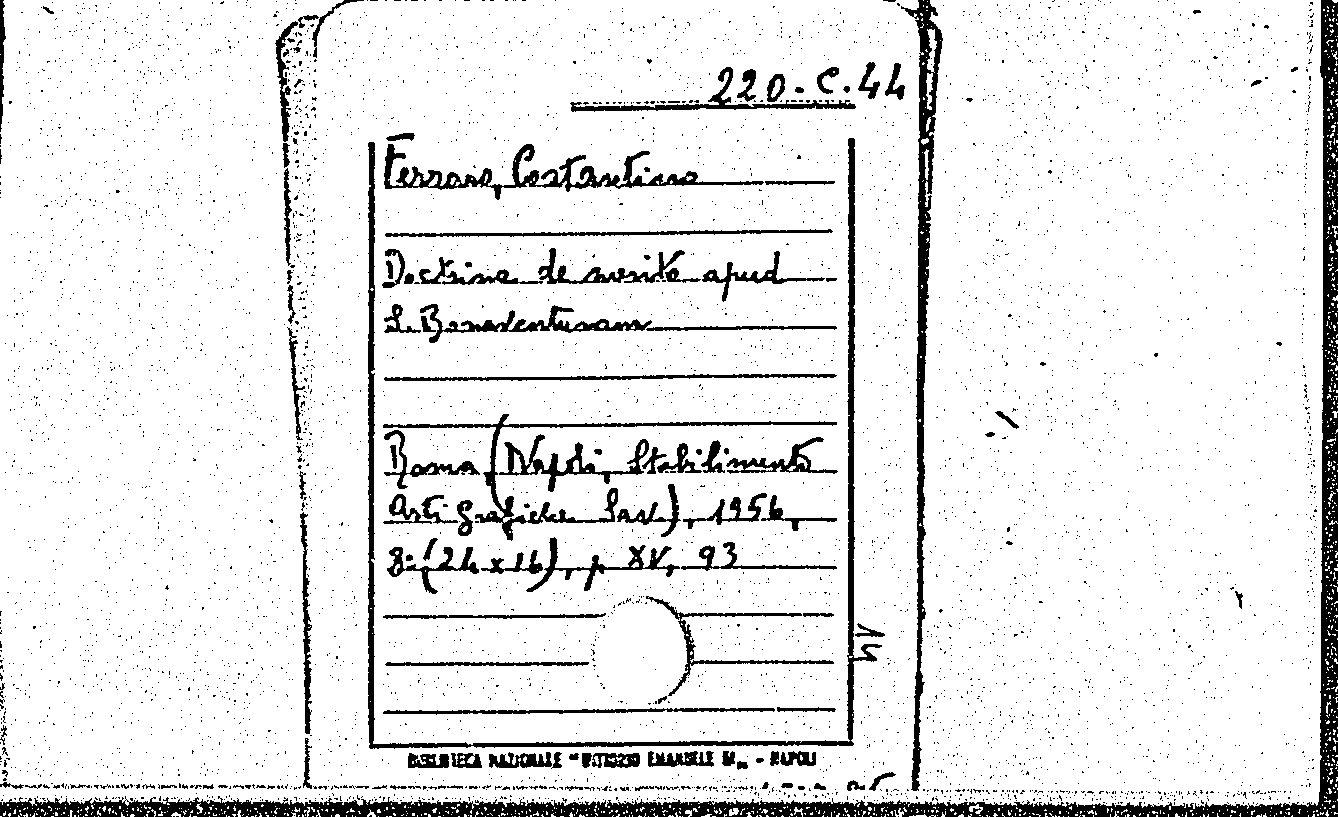 220.C.44
Ferraro, Costantino
Doctrina de merito apud
S. Bonaventuram
Roma (Napoli, Stabilimento
Arti Grafiche), 1956,
8° (24 x 16), p. XV, 93
BIBLIOTECA NAZIONALE "VITTORIO EMANUELE III„ - NAPOLI